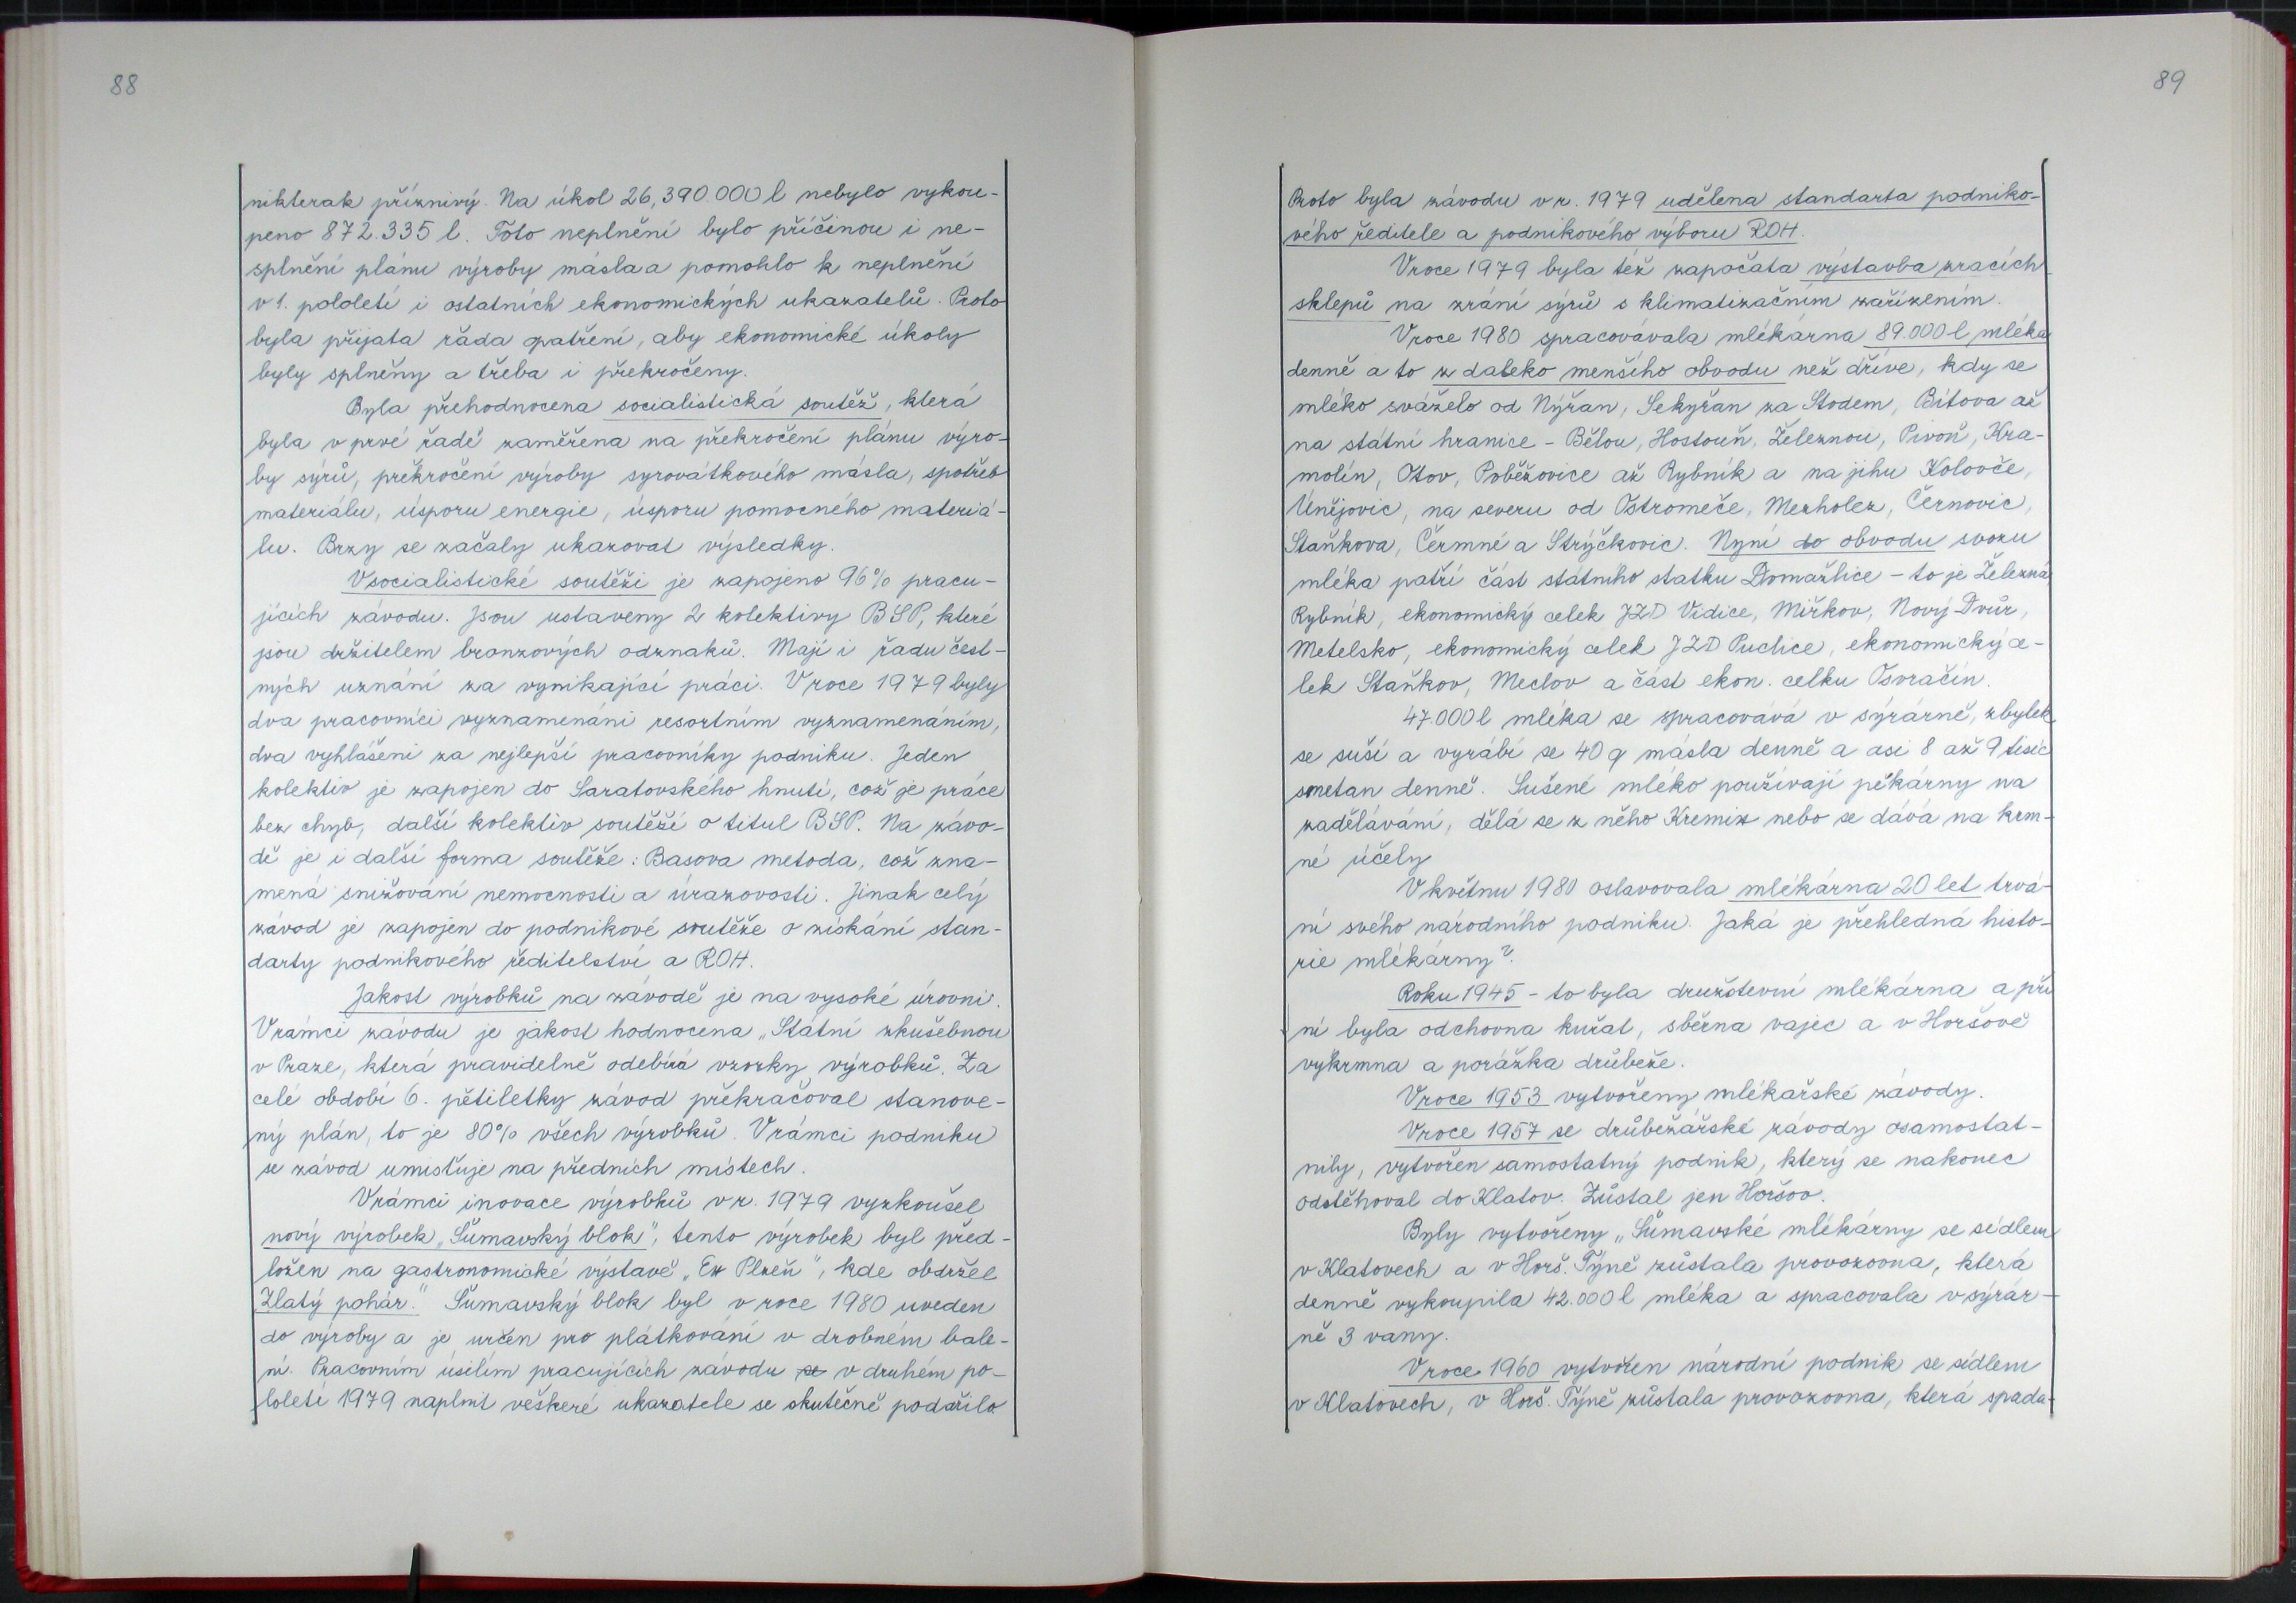 88
nikterak příznivý. Na úkol 26,390.000 l nebylo vykou-
peno 872.335 l. Toto neplnění bylo příčinou i ne-
splnění plánu výroby másla a pomohlo k neplnění
v 1. pololetí i ostatních ekonomických ukazatelů. Proto
byla přijata řada opatření, aby ekonomické úkoly
byly splněny a třeba i překročeny.
Byla přehodnocena socialistická soutěž, která
byla v prvé řadě zaměřena na překročení plánu výro-
by sýrů, překročení výroby syrovátkového másla, spotřeb
materiálu, úsporu energie, úsporu pomocného materiá-
lu. Brzy se začaly ukazovat výsledky.
V socialistické soutěži je zapojeno 96% pracu-
jících závodu. Jsou ustaveny 2 kolektivy BSP, které
jsou držitelem bronzových odznaků. Mají i řadu čest-
ných uznání za vynikající práci. V roce 1979 byly
dva pracovníci vyznamenáni resortním vyznamenáním,
dva vyhlášeni za nejlepší pracovníky podniku. Jeden
kolektiv je zapojen do Saratovského hnutí, což je práce
bez chyb, další kolektiv soutěží o titul BSP. Na závo-
dě je i další forma soutěže: Basova metoda, což zna-
mená snižování nemocnosti a úrazovosti. Jinak celý
závod je zapojen do podnikové soutěže o získání stan-
darty podnikového ředitelství a ROH.
Jakost výrobků na závodě je na vysoké úrovni.
V rámci závodu je jakost hodnocena „Státní zkušebnou
v Praze, která pravidelně odebírá vzorky výrobků. Za
celé období 6. pětiletky závod překračoval stanove-
ný plán, to je 80% všech výrobků. V rámci podniku
se závod umisťuje na předních místech.
V rámci inovace výrobků v r. 1979 vyzkoušel
nový výrobek „Šumavský blok", tento výrobek byl před-
ložen na gastronomické výstavě „Ex Plzeň", kde obdržel
„Zlatý pohár." Šumavský blok byl v roce 1980 uveden
do výroby a je určen pro plátkování v drobném bale-
ní. Pracovním úsilím pracujících závodu se v druhém po-
loletí 1979 naplnit veškeré ukazatele se skutečně podařilo
89
Proto byla závodu v r. 1979 udělena standarta podniko-
vého ředitele a podnikového výboru ROH.
V roce 1979 byla též započata výstavba zracích
sklepů na zrání sýrů s klimatizačním zařízením.
V roce 1980 zpracovávala mlékárna 89.000 l mléka
denně a to z daleko menšího obvodu než dříve, kdy se
mléko sváželo od Nýřan, Sekyřan za Stodem, Bítova až
na státní hranice - Bělou, Hostouň, Železnou, Pivoň, Kra-
molín, Otov, Poběžovice až Rybník a na jihu Koloveče,
Únějovic, na severu od Ostromeče, Mezholez, Černovic,
Staňkova, Čermné a Strýčkovic. Nyní do obvodu svozu
mléka patří část státního statku Domažlice - to je Železná
Rybník, ekonomický celek JZD Vidice, Mířkov, Nový Dvůr,
Metelsko, ekonomický celek JZD Puclice, ekonomický ce-
lek Staňkov, Meclov a část ekon. celku Osvračín.
47.000 l mléka se zpracovává v sýrárně, zbylek
se suší a vyrábí se 40 q másla denně a asi 8 až 9 tisíc
smetan denně. Sušené mléko používají pekárny na
zadělávání, dělá se z něho Kremix nebo se dává na krm-
né účely
V květnu 1980 oslavovala mlékárna 20 let trvá-
ní svého národního podniku. Jaká je přehledná histo-
rie mlékárny?
Roku 1945 - to byla družstevní mlékárna a při
ní byla odchovna kuřat, sběrna vajec a v Horšově
výkrmna a porážka drůbeže.
V roce 1953 vytvořeny mlékařské závody.
V roce 1957 se drůbežářské závody osamostat-
nily, vytvořen samostatný podnik, který se nakonec
odstěhoval do Klatov. Zůstal jen Horšov.
Byly vytvořeny „Šumavské mlékárny se sídlem
v Klatovech a v Horš. Týně zůstala provozovna, která
denně vykoupila 42.000 l mléka a spracovala v sýrár-
ně 3 vany.
V roce 1960 vytvořen národní podnik se sídlem
v Klatovech, v Horš. Týně zůstala provozovna, která spada-